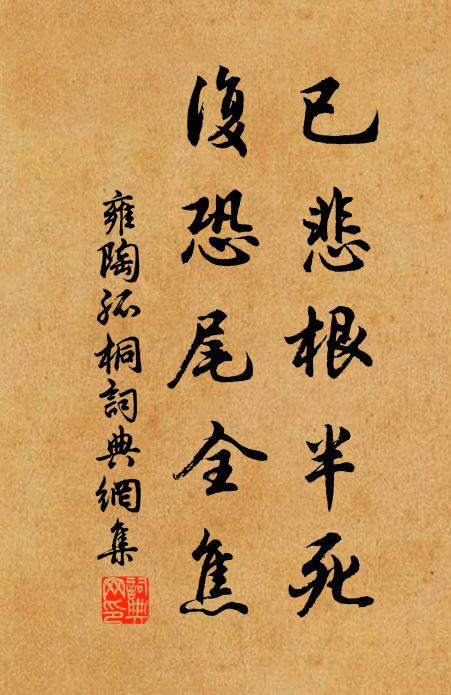 已悲根半死
復恐尾全焦
雍陶孤桐詞典網集
詞典网印